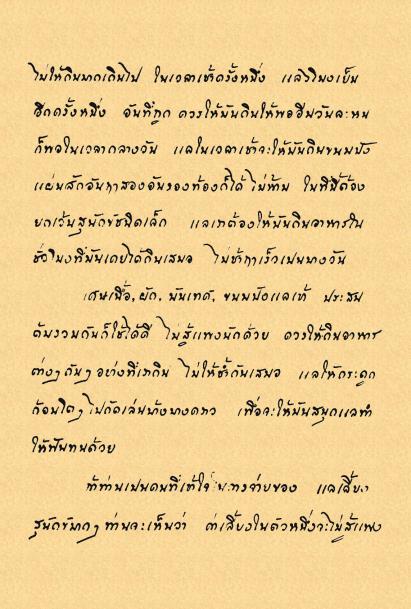 ไม่ให้กินมากเกินไป ในเวลาเช้าครั้งหนึ่ง แลชั่วโมงเย็น
อีกครั้งหนึ่ง อันที่ถูก ควรให้มันกินให้พออิ่มวันละหน
ก็พอในเวลากลางวัน แลในเวลาเช้าจะให้มันกินขนมปัง
แผ่นสักอันฤาสองอันรองท้องก็ได้ ไม่ห้าม ในที่นี้ต้อง
ยกเว้นสุนัขชนิดเล็ก แลเราต้องให้มันกินอาหารใน
ชั่วโมงที่มันเคยได้กินเสมอ ไม่ช้าฤาเร็วเปนบางวัน
เศษเนื้อ, ผัก, มันเทศ, ขนมปังแลเข้า ประสม
ต้มรวมกันก็ใช้ได้ดี ไม่สู้แพงนักด้วย ควรให้กินอาหาร
ต่างๆกันๆ อย่างที่เรากิน ไม่ให้ซ้ำกันเสมอ แลให้กระดูก
ก้อนโตๆ ไปกัดเล่นบ้างบางคราว เพื่อจะให้มันสนุกแลทำ
ให้ฟันทนด้วย
ถ้าท่านเปนคนที่เข้าใจ ทางจ่ายของ แลเลี้ยง
สุนัขมากๆ ท่านจะเห็นว่า ค่าเลี้ยงในตัวหนึ่งจะไม่สู้แพง